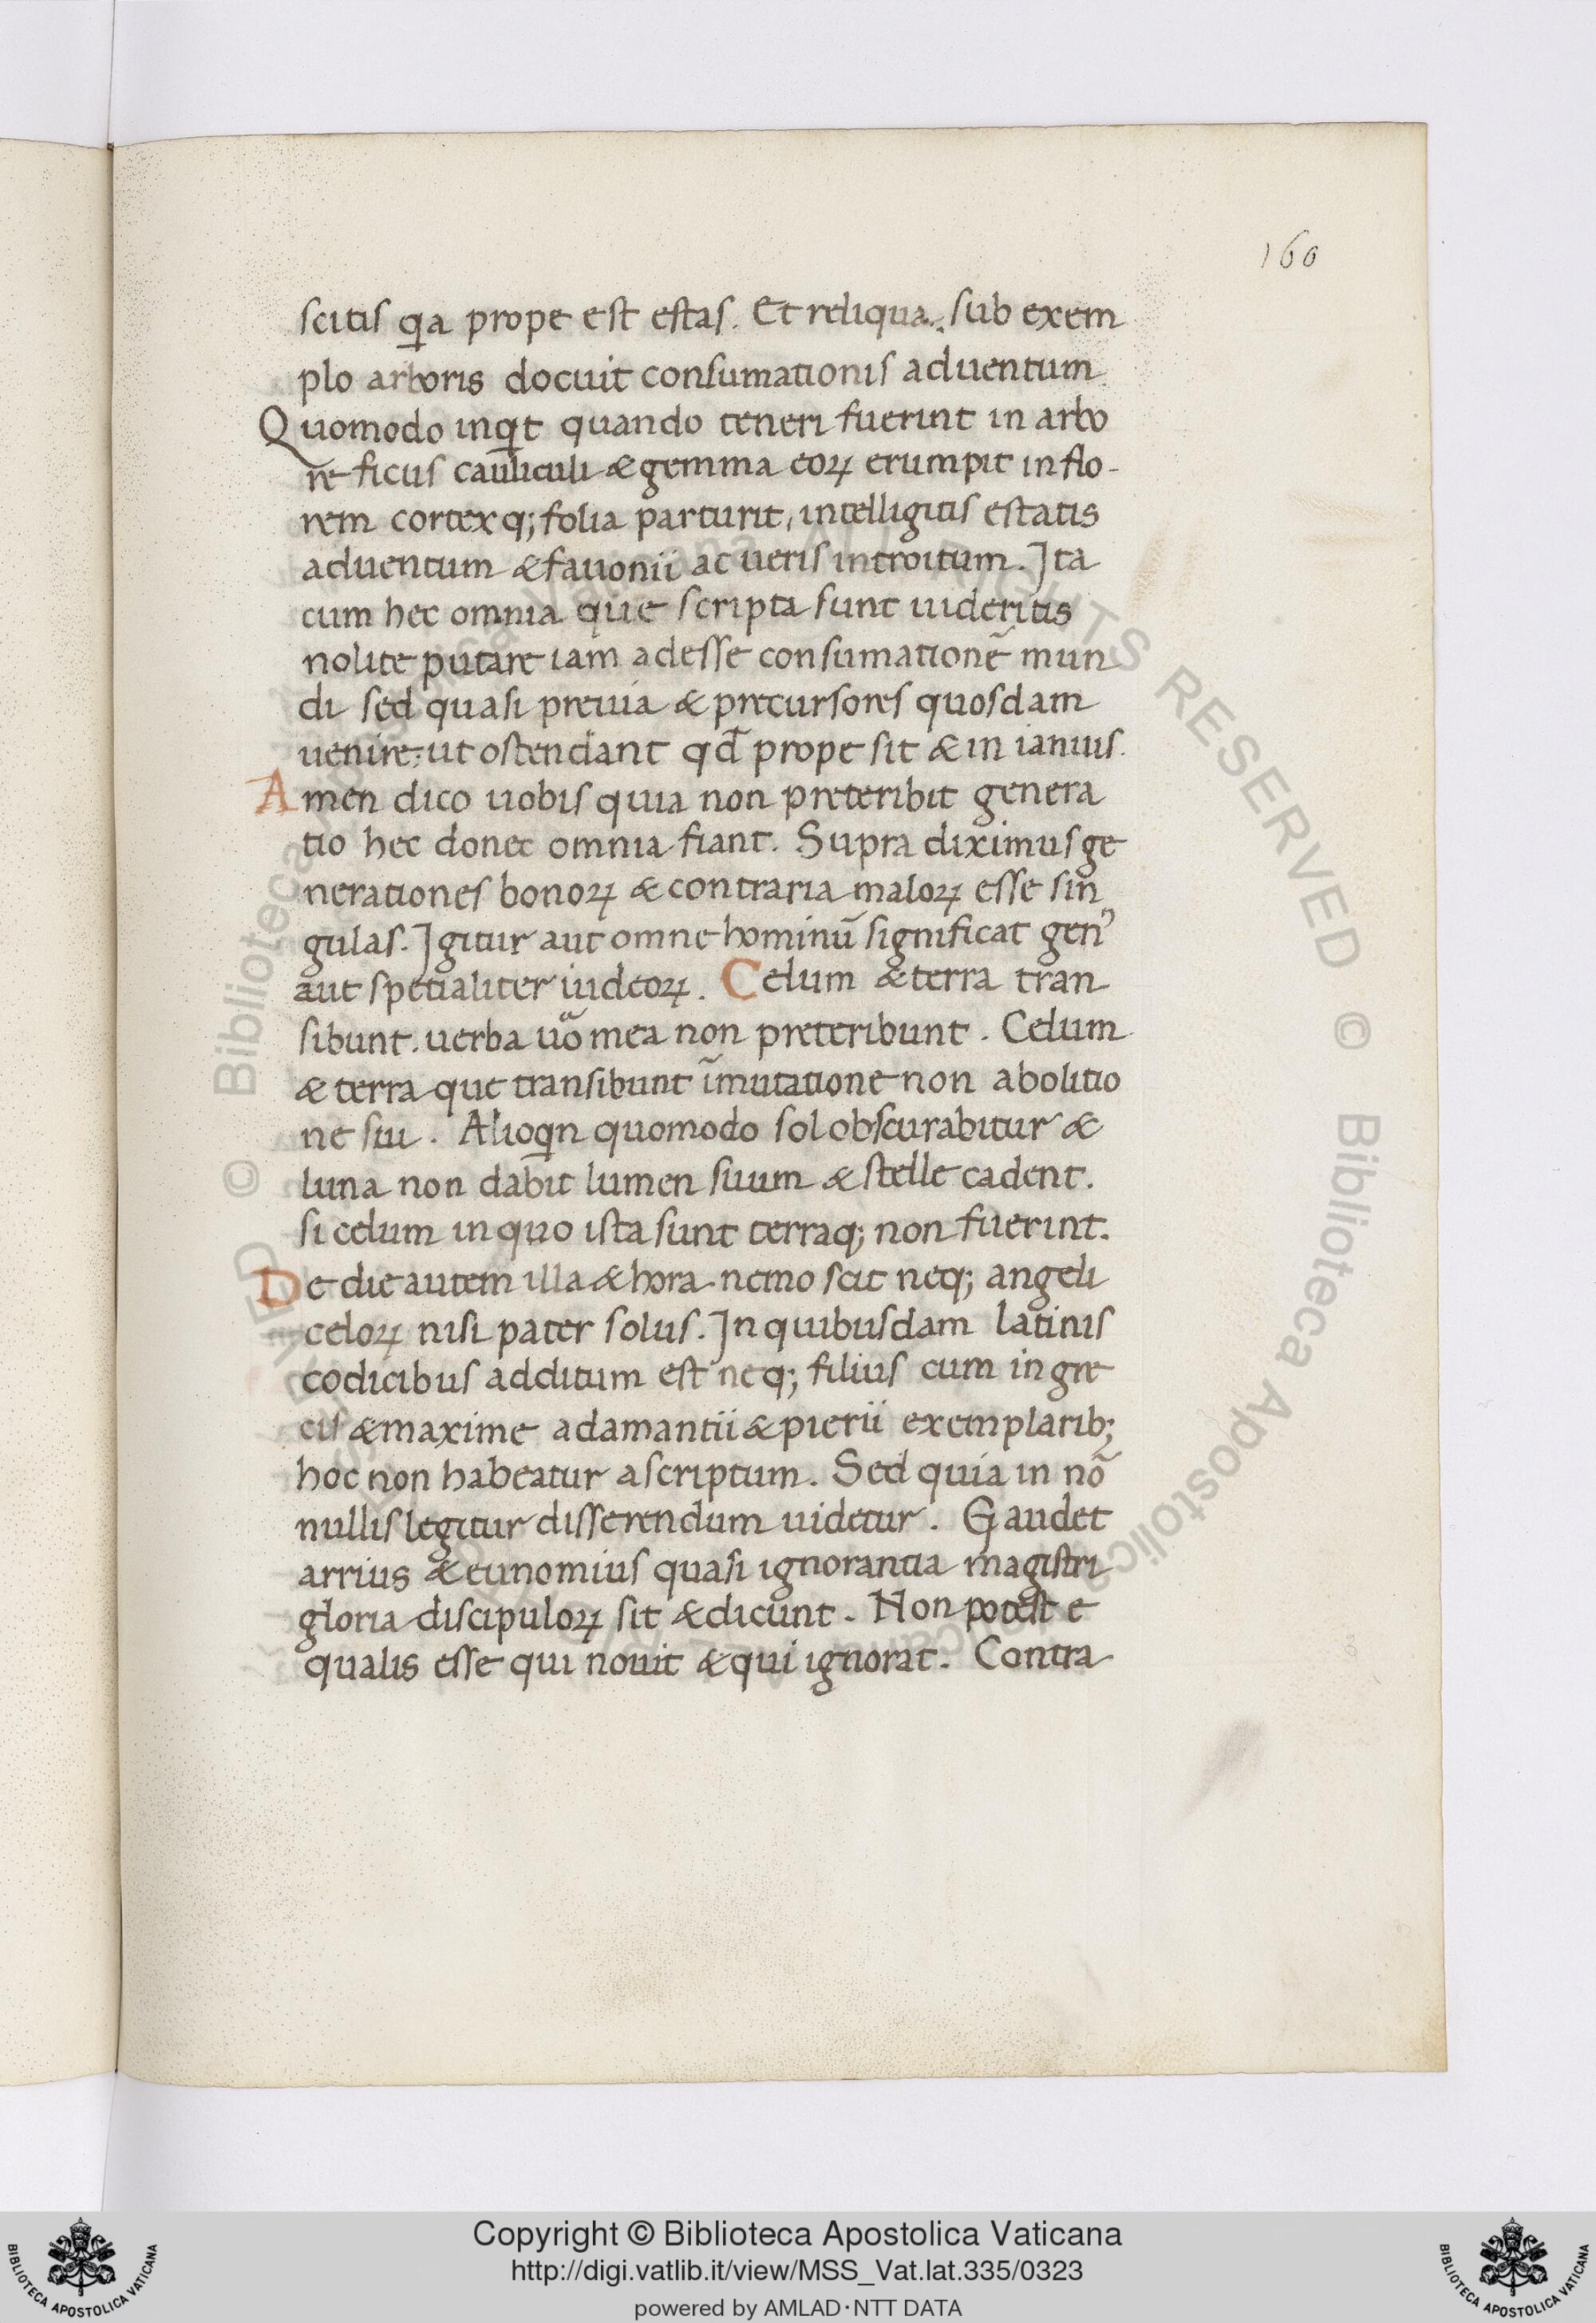 160
scitis qa prope est estas. Et reliqua. sub exem
plo arboris docuit consumationis aduentum
Quomodo inqt quando teneri fuerint in arbo
re ficus cauliculi & gemma eoꝝ erumpit in flo-
rem cortexq; folia parturit, intelligitis estatis
aduentum & fauonii ac ueris introitum. Ita
cum hec omnia que scripta sunt uideritis
nolite putare iam adesse consumationē mun
di sed quasi preuia & precursores quosdam
uenire, ut ostendant qd̄ prope sit & in ianuis.
Amen dico uobis quia non preteribit genera
tio hec donec omnia fiant. Supra diximus ge
nerationes bonoꝝ & contraria maloꝝ esse sin
gulas. Igitur aut omne hominū significat genꝰ
aut spetialiter iudeoꝝ. Celum & terra tran
sibunt. uerba uo mea non preteribunt. Celum
& terra que transibunt īmutatione non abolitio
ne sui. Alioqn quomodo sol obscurabitur &
luna non dabit lumen suum & stelle cadent.
si celum in quo ista sunt terraq; non fuerint.
De die autem illa & hora nemo scit neq; angeli
celoꝝ nisi pater solus. In quibusdam latinis
codicibus additum est neq; filius cum in gre
cis & maxime adamantii & pierii exemplarib;
hoc non habeatur ascriptum. Sed quia in nō
nullis legitur disserendum uidetur. Gaudet
arrius & eunomius quasi ignorantia magistri
gloria discipuloꝝ sit & dicunt. Non potest e
qualis esse qui nouit & qui ignorat. Contra
Copyright © Biblioteca Apostolica Vaticana
http://digi.vatlib.it/view/MSS_Vat.lat.335/0323
powered by AMLAD·NTT DATA
BIBLIOTECA APOSTOLICA VATICANA
BIBLIOTECA APOSTOLICA VATICANA